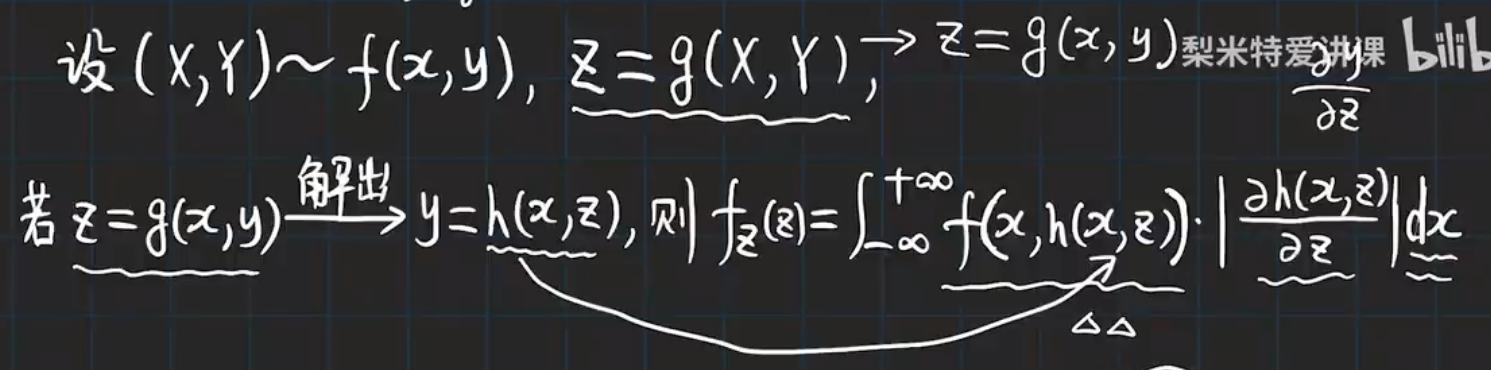 设(X,Y)~f(x,y), Z=g(X,Y), → z=g(x,y) 梨米特爱讲课 bilib
∂y/∂z
若 z=g(x,y) 解出→ y=h(x,z), 则 f_Z(z)=∫_{-∞}^{+∞} f(x,h(x,z))·|∂h(x,z)/∂z|dx
△△